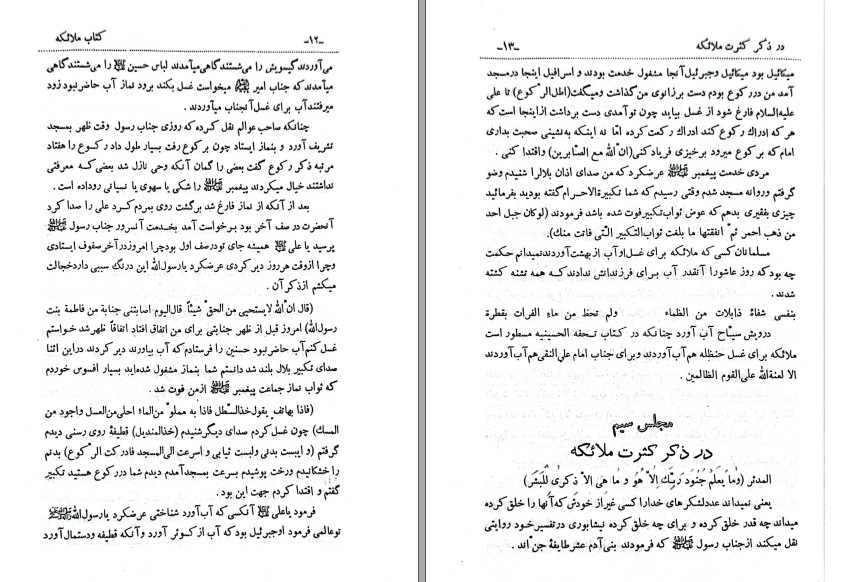 -۱۲- کتاب ملائکه
می‌آوردند گیسویش را می‌شستند گاهی می‌آمدند لباس حسین ﷺ را می‌شستند گاهی
میآمدند که جناب امیر ﷺ میخواست غسل بکند برود نماز آب حاضر نبود زود
میرفتند آب برای غسل آنجناب میآوردند .
چنانکه صاحب عوالم نقل کرده که روزی جناب رسول وقت ظهر بمسجد
تشریف آورد و بنماز ایستاد چون برکوع رفت بسیار طول داد رکوع را هفتاد
مرتبه ذکر رکوع گفت بعضی را گمان آنکه وحی نازل شد بعضی که معرفتی
نداشتند خیال میکردند پیغمبر ﷺ را شکی یا سهوی یا نسیانی روداده است .
بعد از آنکه از نماز فارغ شد برگشت روی بمردم کرد علی را صدا کرد
آنحضرت در صف آخر بود برخواست آمد بخدمت آنسرور جناب رسول ﷺ
پرسید یا علی همیشه جای تو درصف اول بود چرا امروز در آخر صفوف ایستادی
وچرا ازوقت هر روز دیر کردی عرضکرد یارسول الله این درنگ سببی دارد خجالت
میکشم از ذکر آن .
(قال ان الله لایستحیی من الحق شیئاً قال الیوم اصابتنی جنابة من فاطمة بنت
رسول الله) امروز قبل از ظهر جنابتی برای من اتفاق افتاد اتفاقاً ظهر شد خواستم
غسل کنم آب حاضر نبود حسنین را فرستادم که آب بیاورند دیر کردند در این اثنا
صدای تکبیر بلال بلند شد دانستم شما بنماز مشغول شده‌اید بسیار افسوس خوردم
که ثواب نماز جماعت پیغمبر ﷺ از من فوت شد .
(فاذا بهاتف یقول خذ السطل فاذا به مملو من الماء احلی من العسل واجود من
المسك) چون غسل کردم صدای دیگر شنیدم (خذ المندیل) قطیفهٔ روی رسنی دیدم
گرفتم (و ایبست بدنی ولبست ثیابی و اسرعت الی المسجد فادرکت الرکوع) بدنم
را خشکانیدم ورخت پوشیدم بسرعت بمسجد آمدم دیدم شما در رکوع هستید تکبیر
گفتم و اقتدا کردم جهت این بود .
فرمود یا علی آنکسی که آب آورد شناختی عرضکرد یارسول الله ﷺ
تو عالمی فرمود او جبرئیل بود که آب از کوثر آورد و آنکه قطیفه ودستمال آورد
در ذکر کثرت ملائکه -۱۳-
میکائیل بود میکائیل وجبرئیل آنجا مشغول خدمت بودند و اسرافیل اینجا درمسجد
آمد من در رکوع بودم دست برزانوی من گذاشت ومیگفت (اطل الرکوع) تا علی
علیه‌السلام فارغ شود از غسل بیاید چون تو آمدی دست برداشت از اینجا است که
هر که ادراك رکوع کند ادراك رکعت کرده امّا نه اینکه به‌نشینی صحبت بداری
امام که برکوع میرود برخیزی فریاد کنی (انّ الله مع الصّابرین) واقتدا کنی .
مردی خدمت پیغمبر ﷺ عرضکرد که من صدای اذان بلال را شنیدم وضو
گرفتم وروانه مسجد شدم وقتی رسیدم که شما تکبیرة الاحرام گفته بودید بفرمائید
چیزی بفقیری بدهم که عوض ثواب تکبیر فوت شده باشد فرمودند (لوکان جبل احد
من ذهب احمر ثم انفقتها ما بلغت ثواب التکبیر التی فاتت منك).
مسلمانان کسی که ملائکه برای غسل او آب از بهشت آوردند نمیدانم حکمت
چه بود که روز عاشورا آنقدر آب برای فرزندانش ندادند که همه تشنه کشته
شدند .
بنفسی شفاهٔ ذابلات من الظماء ولم تحظ من ماء الفرات بقطرة
درویش سیّاح آب آورد چنانکه در کتاب تحفه الحسینیه مسطور است
ملائکه برای غسل حنظله هم آب آوردند وبرای جناب امام علی النقی هم آب آوردند
الا لعنة الله علی القوم الظالمین .
مجلس سیم
در ذکر کثرت ملائکه
المدثر (وَما یَعلَمُ جُنُودَ رَبِّكَ اِلاّ هُوَ وَ ما هِیَ اِلاّ ذِکری لِلبَشَر)
یعنی نمیداند عدد لشکرهای خدا را کسی غیر از خودش که آنها را خلق کرده
میداند چه قدر خلق کرده و برای چه خلق کرده نیشابوری در تفسیر خود روایتی
نقل میکند از جناب رسول ﷺ که فرمودند بنی آدم عشر طایفهٔ جن اند .